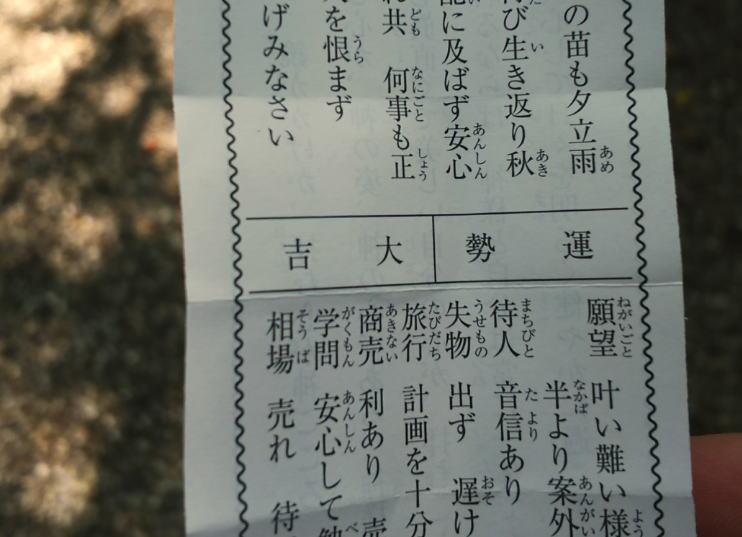 の苗も夕立雨
び生き返り秋
に及ばず安心
共 何事も正
を恨まず
げみなさい
運勢 大吉
願望 叶い難い様
半より案外
待人 音信あり
失物 出ず 遅け
旅行 計画を十分
商売 利あり 売
学問 安心して勉
相場 売れ 待